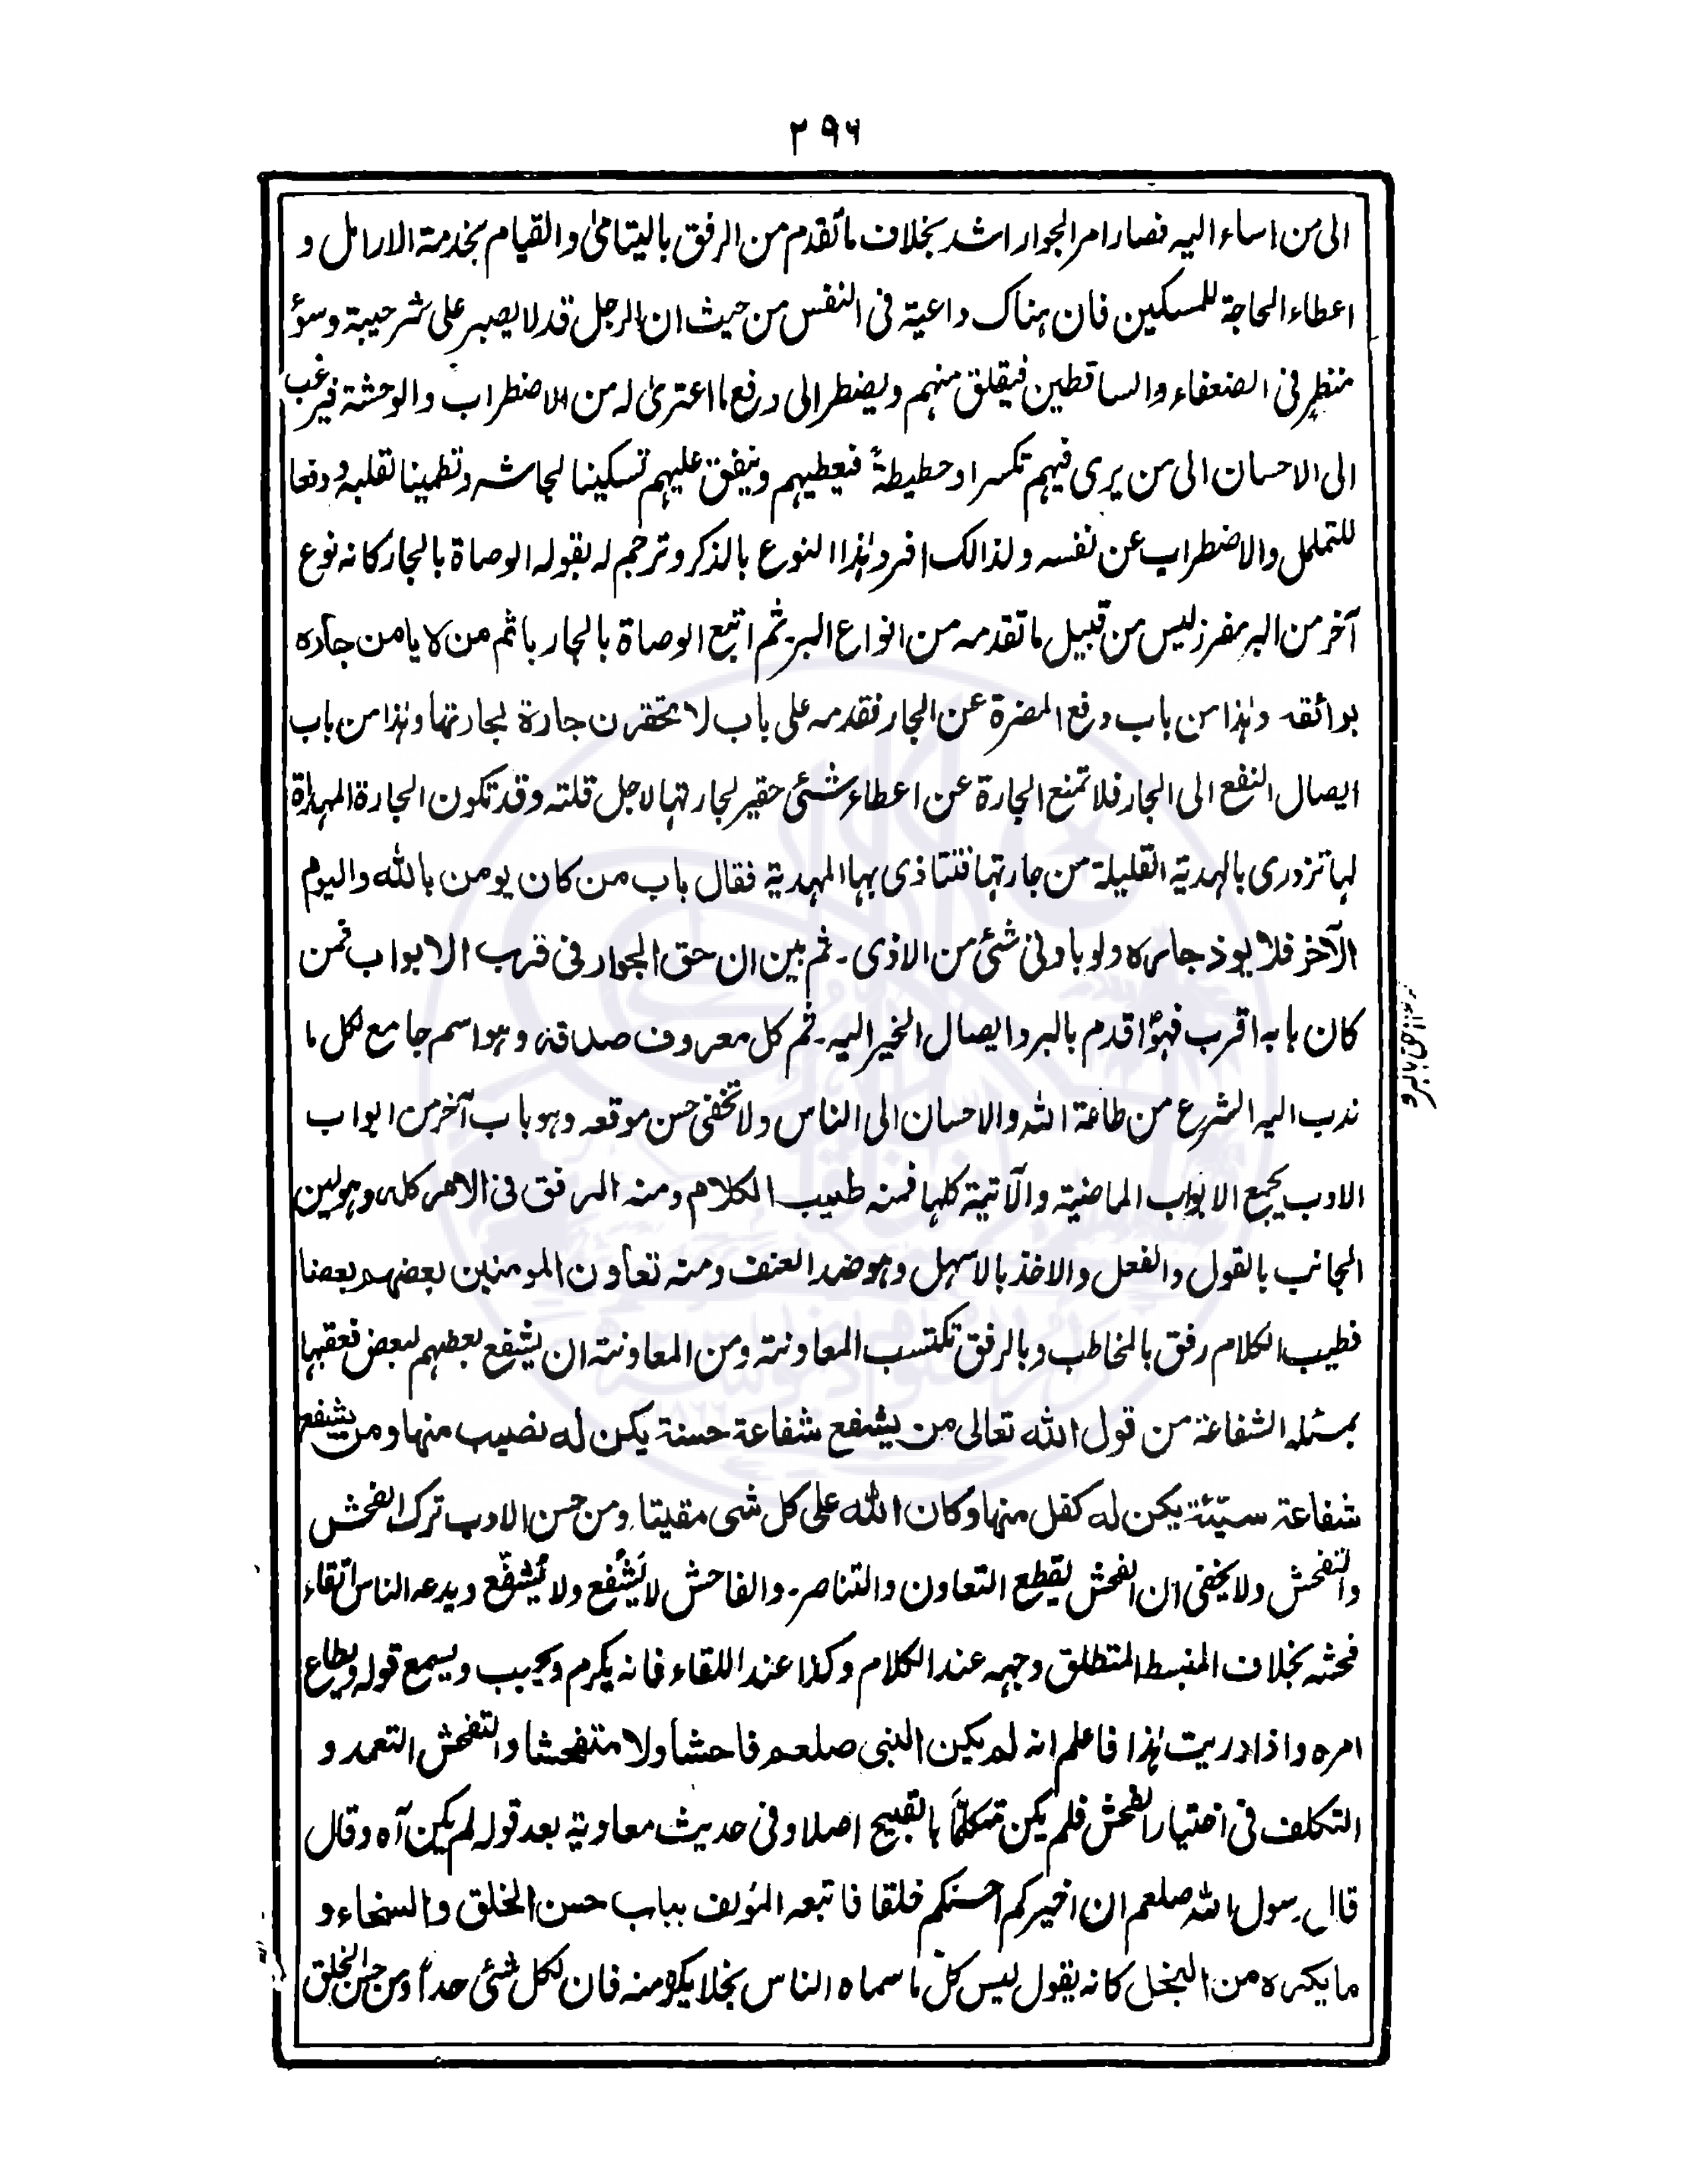 ۲۹۶
الی من اساء الیہ فصار امر الجوار اشد بخلاف ما تقدم من الرفق بالیتامیٰ والقیام بخدمۃ الارامل و
اعطاء الحاجۃ للمسکین فان ہناک داعیۃ فی النفس من حیث ان الرجل قد لا یصبر علی شر حیبۃ وسوٗ
منظر فی الضعفاء والساقطین فیقلق منہم ویضطر الی دفع ما اعتریٰ لہ من الاضطراب والوحشۃ فیرغب
الی الاحسان الی من یری فیہم تکسرا وحطیطۃً فیعطیہم وینفق علیہم تسکینا لجاشہ وتطمینا لقلبہ ودفعا
للتململ والاضطراب عن نفسہ ولذالک افرد ہٰذا النوع بالذکر وترجم لہ بقولہ الوصاۃ بالجار کانہ نوع
آخر من البر مفرز لیس من قبیل ما تقدمہ من انواع البر۔ ثم اتبع الوصاۃ بالجار باثم من لا یامن جارہ
بوائقہ وہٰذا من باب دفع المضرۃ عن الجار فقدمہ علی باب لا تحقرن جارۃ لجارتہا وہٰذا من باب
ایصال النفع الی الجار فلا تمنع الجارۃ عن اعطاء شئی حقیر لجارتہا لاجل قلتہ وقد تکون الجارۃ المہداۃ
لہا تزدری بالہدیۃ القلیلۃ من جارتہا فتتاذی بہا المہدیۃ فقال باب من کان یومن باللہ والیوم
الآخر فلا یوذ جارہ ولو بادنیٰ شئی من الاذی۔ ثم بین ان حق الجوار فی قرب الابواب فمن
کان بابہ اقرب فہوٗ اقدم بالبر وایصال الخیر الیہ۔ ثم کل معروف صدقۃ وہو اسم جامع لکل ما
ندب الیہ الشرع من طاعۃ اللہ والاحسان الی الناس ولا تخفیٰ حسن موقعہ وہو باب آخر من ابواب
الادب یجمع الابواب الماضیۃ والآتیۃ کلہا فمنہ طیب الکلام ومنہ الرفق فی الامر کلہ وہو لین
الجانب بالقول والفعل والاخذ بالاسہل وہو ضد العنف ومنہ تعاون المومنین بعضہم بعضا
فطیب الکلام رفق بالمخاطب وبالرفق تکتسب المعاونۃ ومن المعاونۃ ان یشفع بعضہم لبعض فعقبہا
بمسئلہ الشفاعۃ من قول اللہ تعالی من یشفع شفاعۃ حسنۃ یکن لہ نصیب منہا ومن یشفع
شفاعۃ سیّئۃ یکن لہ کفل منہا وکان اللہ علی کل شی مقیتا۔ ومن حسن الادب ترک الفحش
والتفحش ولا یخفی ان الفحش یقطع التعاون والتناصر۔ والفاحش لا یَشْفع ولا یُشفّع ویدعہ الناس اتقاء
فحشہ بخلاف المنبسط المتطلق وجہہ عند الکلام وکذا عند اللقاء فانہ یکرم ویجیب ویسمع قولہ ویطاع
امرہ واذا دریت ہٰذا فاعلم انہ لم یکن النبی صلعم فاحشا ولا متفحشا والتفحش التعمد و
التکلف فی اختیار الفحش فلم یکن متکلّماً بالقبیح اصلا وفی حدیث معاویۃ بعد قولہ لم یکن آہ وقال
قال رسول اللہ صلعم ان اخیرکم احسنکم خلقا فاتبعہ المؤلف بباب حسن الخلق والسخاء و
ما یکرہ من البخل کانہ یقول لیس کل ما سماہ الناس بخلا یکرہ منہ فان لکل شئی حداً ومن حسن الخلق